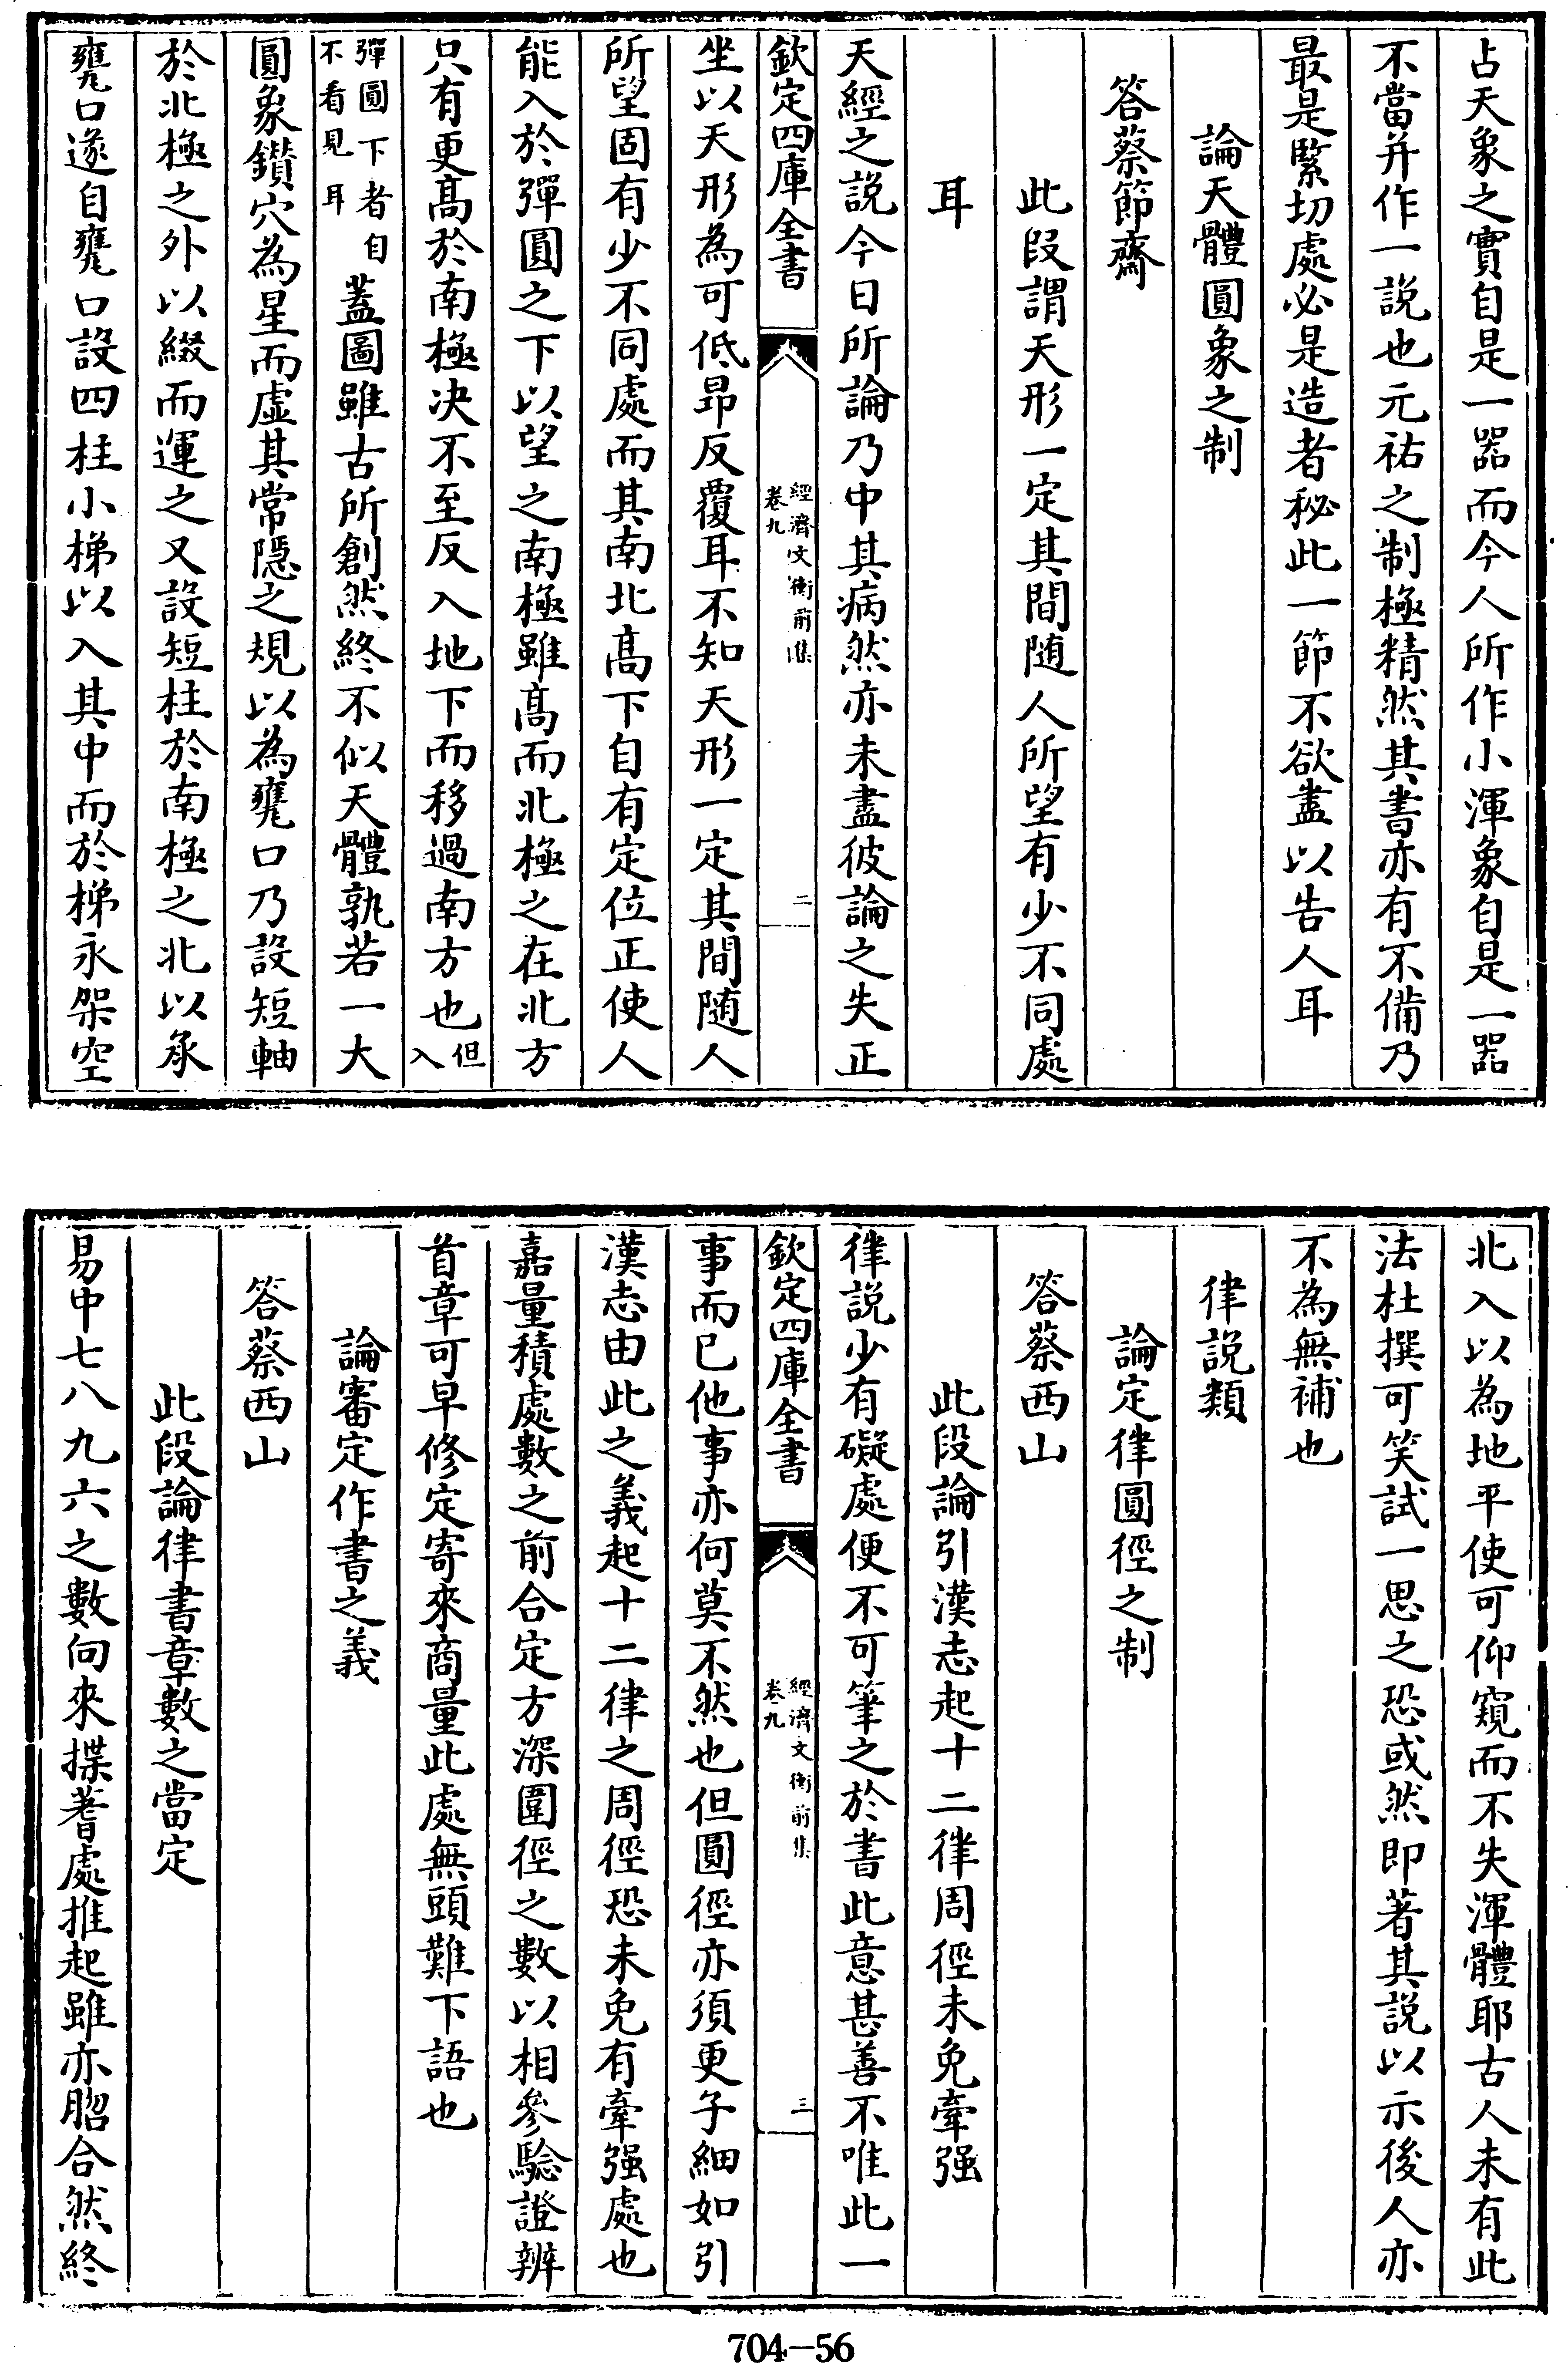 占天象之實自是一器而今人所作小渾象自是一器
不當并作一説也元祐之制極精然其書亦有不備乃
最是緊切處必是造者秘此一節不欲盡以告人耳
論天體圓象之制
答蔡節齋
此段謂天形一定其間随人所望有少不同處
耳
天經之説今日所論乃中其病然亦未盡彼論之失正
欽定四庫全書
經濟文衡前集
卷九
二
坐以天形為可低昂反覆耳不知天形一定其間随人
所望固有少不同處而其南北髙下自有定位正使人
能入於彈圓之下以望之南極雖髙而北極之在北方
只有更髙於南極决不至反入地下而移過南方也但入
彈圓下者自
不看見耳
蓋圖雖古所創然終不似天體孰若一大
圓象鑚穴為星而虚其常隱之規以為甕口乃設短軸
於北極之外以綴而運之又設短柱於南極之北以承
甕口遂自甕口設四柱小梯以入其中而於梯末架空
北入以為地平使可仰窺而不失渾體耶古人未有此
法杜撰可笑試一思之恐或然即著其説以示後人亦
不為無補也
律説類
論定律圓徑之制
答蔡西山
此段論引漢志起十二律周徑未免牽强
律説少有礙處便不可筆之於書此意甚善不唯此一
欽定四庫全書
經濟文衡前集
卷九
三
事而已他事亦何莫不然也但圓徑亦須更子細如引
漢志由此之義起十二律之周徑恐未免有牽强處也
嘉量積處數之前合定方深圍徑之數以相參驗證辨
首章可早修定寄來商量此處無頭難下語也
論審定作書之義
答蔡西山
此段論律書章數之當定
易中七八九六之數向來揲蓍處推起雖亦脗合然終
704-56